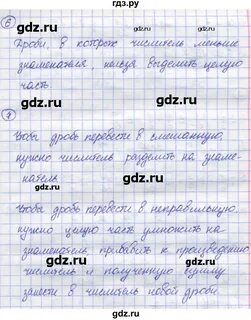 гдз.ру
6
Дроби, в которых числитель меньше
знаменателя, нельзя выделить целую
часть
7
Чтобы дробь перевести в смешанную,
нужно числитель разделить на знаме-
натель
Чтобы дробь перевести в неправильную,
нужно целую часть умножить на
знаменатель, прибавить к произведению
числитель и полученную сумму
занести в числитель новой дроби.